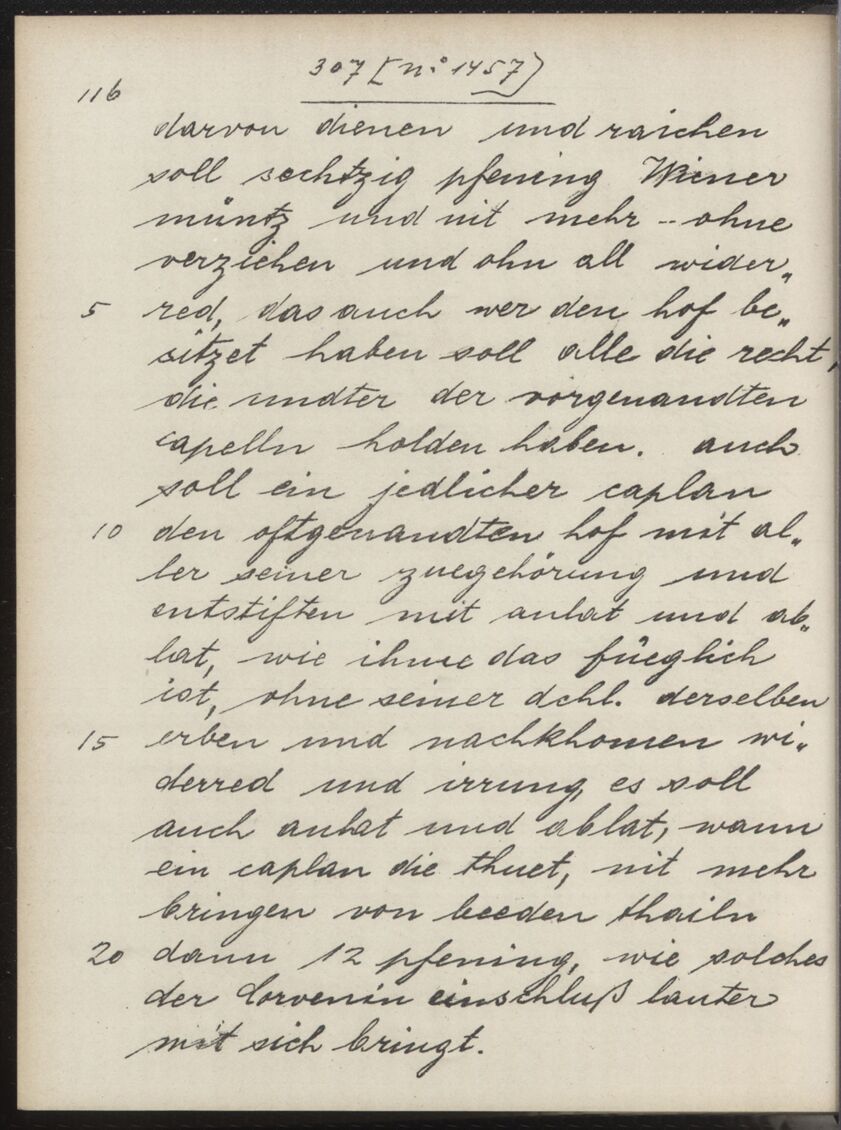 307 [n:o 1457)
116
darvon dienen und raichen
soll sechtzig pfening Wiener
müntz und nit mehr -- ohne
verziehen und ohn all wider„
5 red, das auch wer den hof be„
sitzet haben soll alle die recht,
die undter der vorgenandten
capelln holden haben. auch
soll ein jedlicher caplan
10 den oftgenandten hof mit al„
ler seiner zuegehörung und
entstiften mit anlat und ab„
lat, wie ihme das füeglich
ist, ohne seiner dchl. derselben
15 erben und nachkhomen wi„
derred und irrung, es soll
auch anlat und ablat, wann
ein caplan die thuet, nit mehr
bringen von beeden thailn
20 dann 12 pfening, wie solches
der einschluß lauter
mit sich bringt.